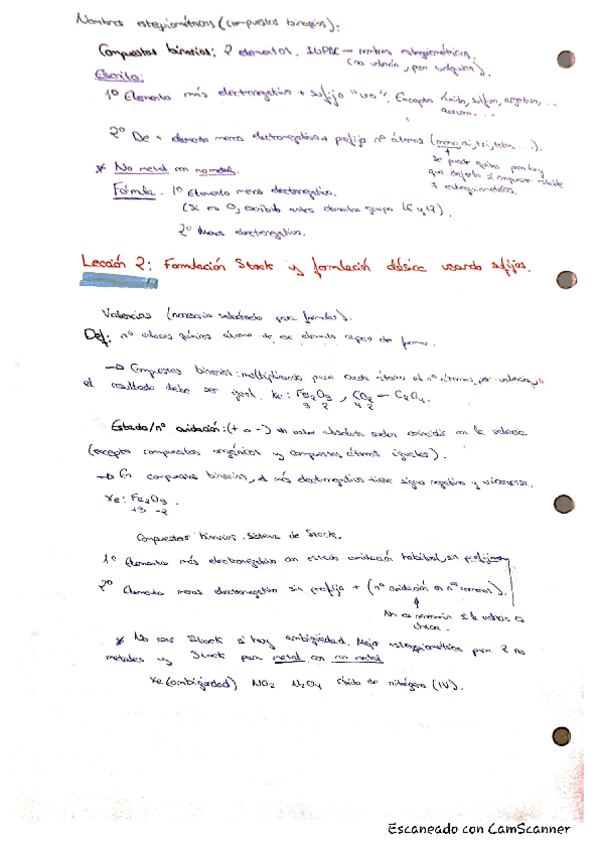 Nombres estequiométricos (compuestos binarios):
Compuestos binarios: 2 elementos. IUPAC → nombres estequiométricos.
(no valencia, para cualquiera).
Escrito:
1º Elemento más electronegativo + sufijo "uro". Excepto óxido, sulfuro,
2º De + elemento menos electronegativo + prefijo nº átomos (mono, di, tri, tetra...).
se puede quitar
* No metal con no metal.
Fórmula. 1º Elemento menos electronegativo.
(Si es O, escribirlo antes elementos grupo 16 y 17).
2º Menos electronegativo.
Lección 2: Formulación Stock y formulación clásica usando sufijos.
Valencias (necesario saberlas para formular).
Def: nº enlaces químicos átomo de ese elemento capaz de formar.
→ Compuestos binarios: multiplicando para cada átomo el nº átomos por valencia,
el resultado debe ser igual. Xe: Fe₂O₃, CO₂ — C₂O₄.
3 2 4 2
Estado/nº oxidación: (+ o -) en valor absoluto suelen coincidir con la valencia
(excepto compuestos orgánicos y compuestos átomos iguales).
→ En compuestos binarios, el más electronegativo tiene signo negativo y viceversa.
Xe: Fe₂O₃.
+3 -2
Compuestos binarios. Sistema de Stock.
1º Elemento más electronegativo con estado oxidación habitual, sin prefijos
2º Elemento menos electronegativo sin prefijo + (nº oxidación en nºs romanos).
No es necesario si la valencia es
única.
* No usar Stock si hay ambigüedad. Mejor estequiométrica para 2 no
metales y Stock para metal con no metal
Xe (ambigüedad) NO₂ N₂O₄ óxido de nitrógeno (IV).
Escaneado con CamScanner